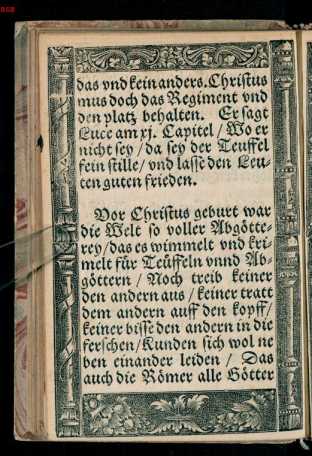 das vnd kein anders. Christus
mus doch das Regiment vnd
den platz behalten. Er sagt
Luce am xj. Capitel / Wo er
nicht sey / da sey der Teuffel
fein stille / vnd lasse den Leu-
ten guten frieden.
Vor Christus geburt war
die Welt so voller Abgötte-
rey / das es wimmelt vnd kri-
melt für Teüffeln vnnd Ab-
göttern / Noch treib keiner
den andern aus / keiner tratt
dem andern auff den kopff /
keiner bisse den andern in die
ferschen / Kunden sich wol ne
ben einander leiden / Das
auch die Römer alle Götter